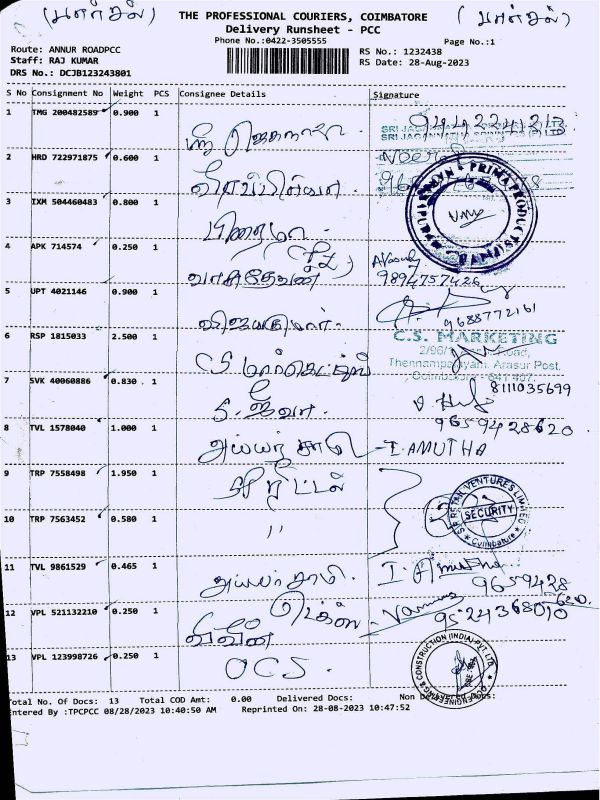 THE PROFESSIONAL COURIERS, COIMBATORE
Delivery Runsheet - PCC
Phone No.:0422-3505555
Page No.:1
Route: ANNUR ROADPCC
RS No.: 1232438
Staff: RAJ KUMAR
RS Date: 28-Aug-2023
DRS No.: DCJB123243801
S No Consignment No Weight PCS Consignee Details Signature
1 TMG 200482589 0.900 1
2 HRD 722971875 0.600 1
3 IXM 504460483 0.800 1
PRIMA PRODUCTS
4 APK 714574 0.250 1 வாசுதேவன்
9894757426
5 UPT 4021146 0.900 1 விஜயகுமார்.
9688772161
6 RSP 1815033 2.500 1 C.S. மார்கெட்டிங்
C.S. MARKETING
Thennampalayam, Arasur Post,
Coimbatore - 641 407.
7 SVK 40060886 0.830 1 S. ஜீவா.
8111035699
8 TVL 1578040 1.000 1 அய்யர் சாமி - I. AMUTHA
9659428620
9 TRP 7558498 1.950 1
VENTURES LIMITED
SECURITY
Coimbatore
10 TRP 7563452 0.580 1 "
11 TVL 9861529 0.465 1 அய்யர் சாமி. I. Amutha
9659428
620
12 VPL 521132210 0.250 1 நவீன்
9524368010
13 VPL 123998726 0.250 1 OCS.
ENGINEERING & CONSTRUCTION (INDIA) PVT. LTD.
Total No. Of Docs: 13 Total COD Amt: 0.00 Delivered Docs: Non Delivered Docs:
Entered By :TPCPCC 08/28/2023 10:40:50 AM Reprinted On: 28-08-2023 10:47:52